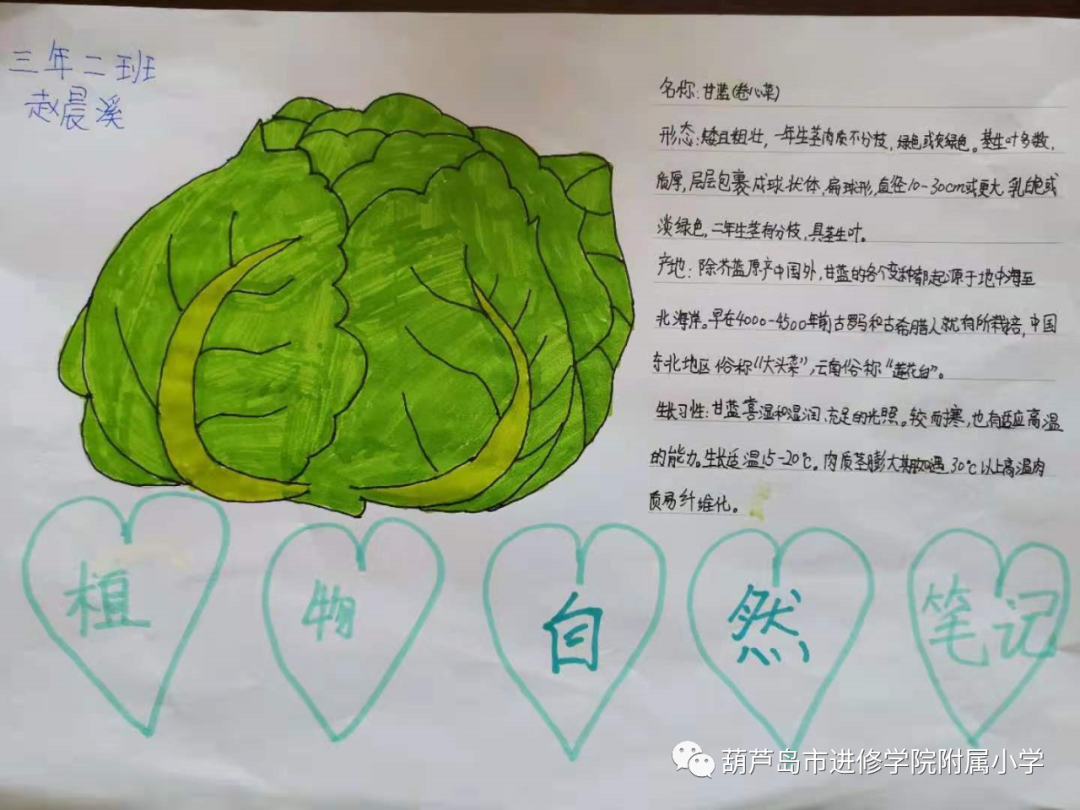 三年二班
赵晨溪
名称:甘蓝(卷心菜)
形态:矮且粗壮,一年生茎肉质不分枝,绿色或灰绿色。基生叶多数,
质厚,层层包裹成球状体,扁球形,直径10-30cm或更大 乳白色或
淡绿色,二年生茎有分枝,具茎生叶。
产地:除芥蓝原产中国外,甘蓝的各个变种都起源于地中海至
北海岸。早在4000-4500年前古罗马和古希腊人就有所栽培,中国
东北地区俗称“大头菜”,云南俗称“莲花白”。
生长习性:甘蓝喜湿和湿润、充足的光照。较耐寒,也有适应高温
的能力。生长适温15-20℃。肉质茎膨大期如遇30℃以上高温肉
质易纤维化。
植 物 自 然 笔记
葫芦岛市进修学院附属小学